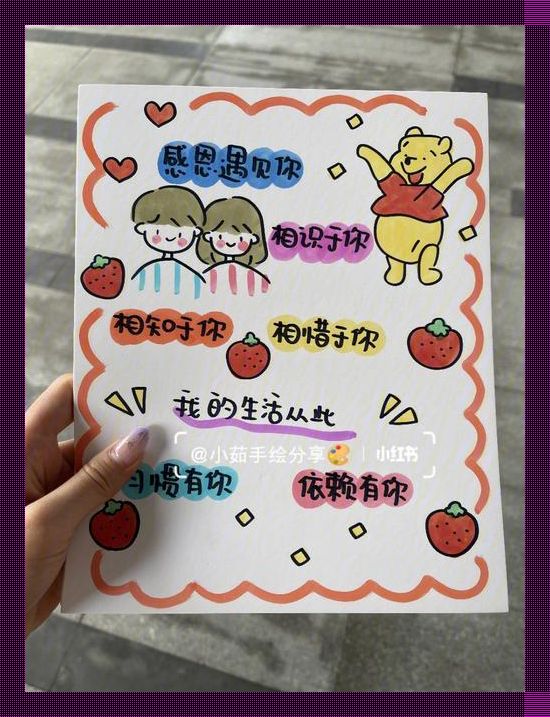 感恩遇见你
相识于你
相知于你
相惜于你
我的生活从此
@小茹手绘分享 | 小红书
习惯有你
依赖有你